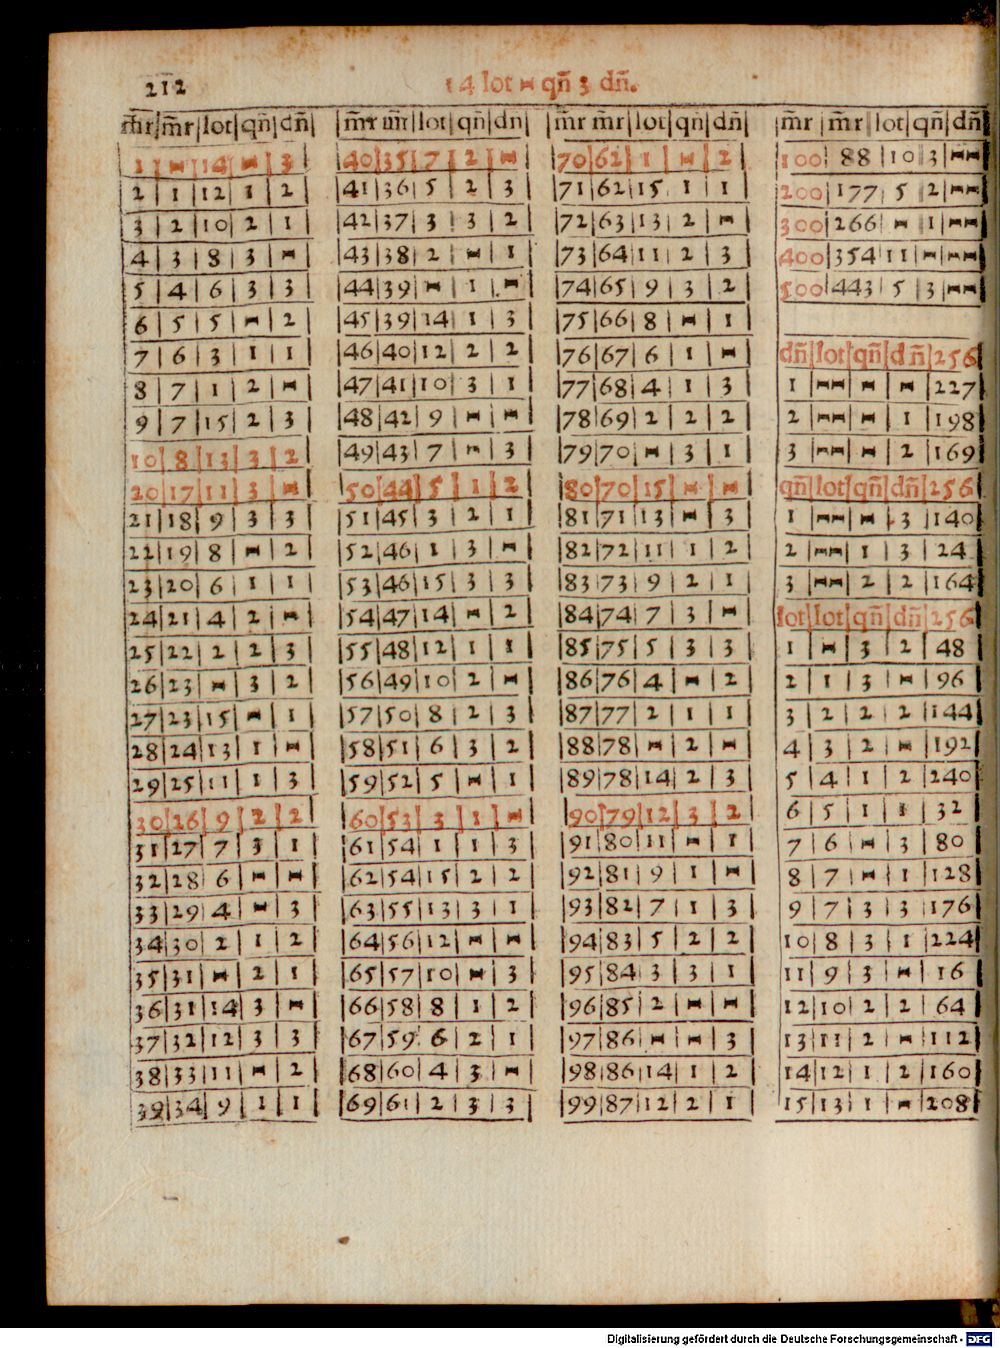 212
14 lot H qñ 3 dñ.
m̃r|m̃r|lot|qñ|dñ
1|H|14|H|3
2|1|12|1|2
3|2|10|2|1
4|3|8|3|H
5|4|6|3|3
6|5|5|H|2
7|6|3|1|1
8|7|1|2|H
9|7|15|2|3
10|8|13|3|2
20|17|11|3|H
21|18|9|3|3
22|19|8|H|2
23|20|6|1|1
24|21|4|2|H
25|22|2|2|3
26|23|H|3|2
27|23|15|H|1
28|24|13|1|H
29|25|11|1|3
30|26|9|2|2
31|27|7|3|1
32|28|6|H|H
33|29|4|H|3
34|30|2|1|2
35|31|H|2|1
36|31|14|3|H
37|32|12|3|3
38|33|11|H|2
39|34|9|1|1
m̃r|m̃r|lot|qñ|dñ
40|35|7|2|H
41|36|5|2|3
42|37|3|3|2
43|38|2|H|1
44|39|H|1|H
45|39|14|1|3
46|40|12|2|2
47|41|10|3|1
48|42|9|H|H
49|43|7|H|3
50|44|5|1|2
51|45|3|2|1
52|46|1|3|H
53|46|15|3|3
54|47|14|H|2
55|48|12|1|1
56|49|10|2|H
57|50|8|2|3
58|51|6|3|2
59|52|5|H|1
60|53|3|1|H
61|54|1|1|3
62|54|15|2|2
63|55|13|3|1
64|56|12|H|H
65|57|10|H|3
66|58|8|1|2
67|59|6|2|1
68|60|4|3|H
69|61|2|3|3
m̃r|m̃r|lot|qñ|dñ
70|62|1|H|2
71|62|15|1|1
72|63|13|2|H
73|64|11|2|3
74|65|9|3|2
75|66|8|H|1
76|67|6|1|H
77|68|4|1|3
78|69|2|2|2
79|70|H|3|1
80|70|15|H|H
81|71|13|H|3
82|72|11|1|2
83|73|9|2|1
84|74|7|3|H
85|75|5|3|3
86|76|4|H|2
87|77|2|1|1
88|78|H|2|H
89|78|14|2|3
90|79|12|3|2
91|80|11|H|1
92|81|9|1|H
93|82|7|1|3
94|83|5|2|2
95|84|3|3|1
96|85|2|H|H
97|86|H|H|3
98|86|14|1|2
99|87|12|2|1
m̃r|m̃r|lot|qñ|dñ
100|88|10|3|HH
200|177|5|2|HH
300|266|H|1|HH
400|354|11|H|HH
500|443|5|3|HH
dñ|lot|qñ|dñ|256
1|HH|H|H|227
2|HH|H|1|198
3|HH|H|2|169
qñ|lot|qñ|dñ|256
1|HH|H|3|140
2|HH|1|3|24
3|HH|2|2|164
lot|lot|qñ|dñ|256
1|H|3|2|48
2|1|3|H|96
3|2|2|2|144
4|3|2|H|192
5|4|1|2|240
6|5|1|1|32
7|6|H|3|80
8|7|H|1|128
9|7|3|3|176
10|8|3|1|224
11|9|3|H|16
12|10|2|2|64
13|11|2|H|112
14|12|1|2|160
15|13|1|H|208
Digitalisierung gefördert durch die Deutsche Forschungsgemeinschaft - DFG